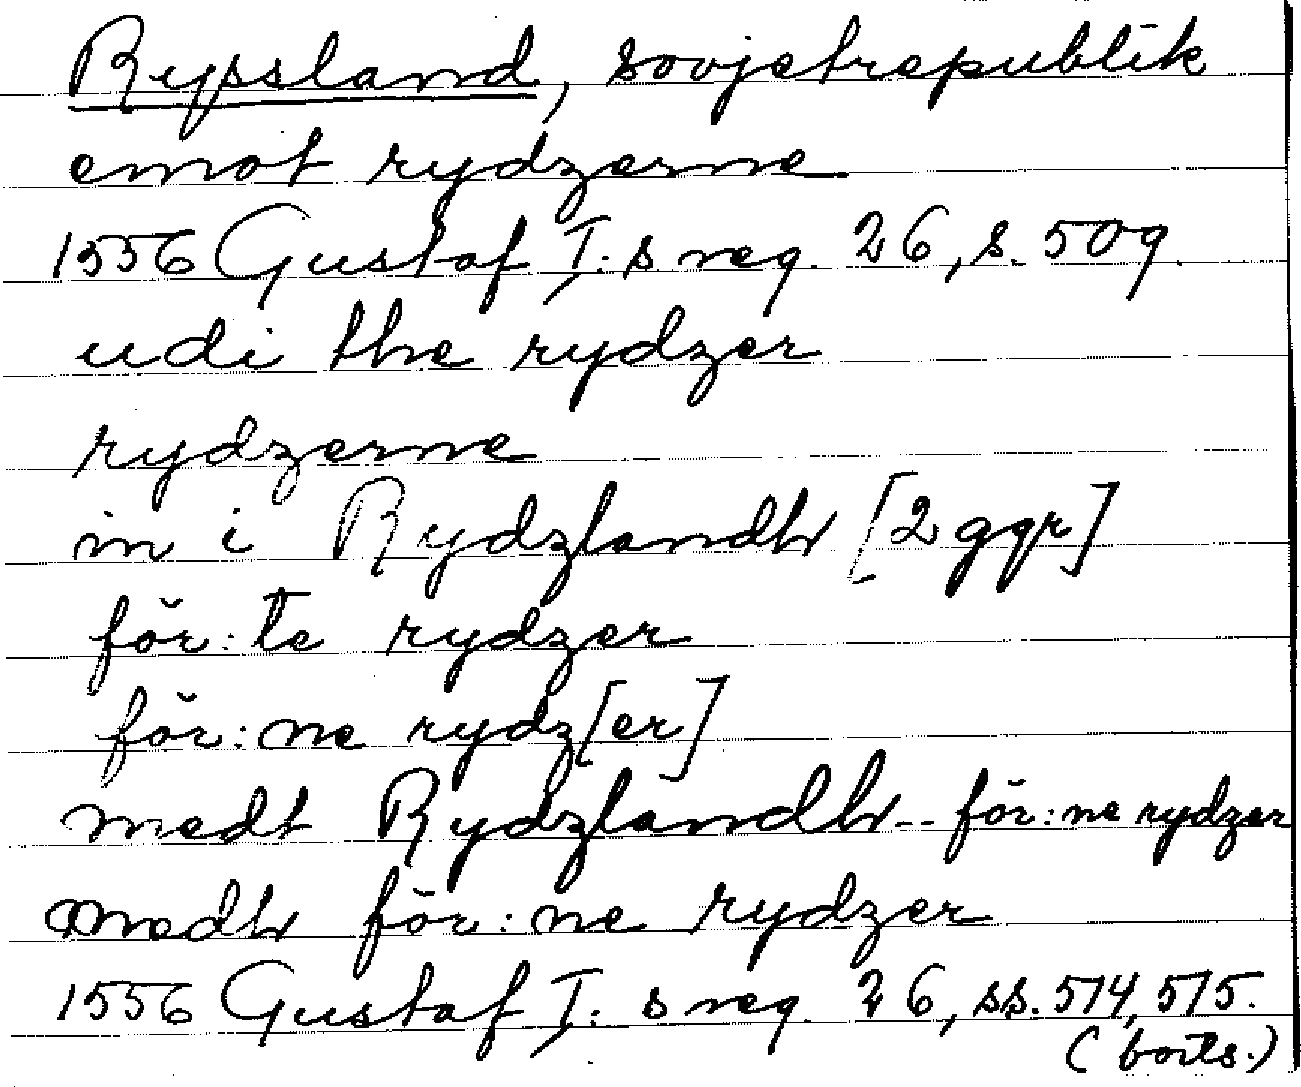 Ryssland, sovjetrepublik
emot rydzerne
1556 Gustaf I:s reg. 26, s. 509.
udi the rydzer
rydzerne
in i Rydzlandh [2 ggr]
för:te rydzer
för:ne rydz[er]
medt Rydzlandh -- för:ne rydzer
medh för:ne rydzer
1556 Gustaf I:s reg. 26, ss. 514, 515.
(forts.)